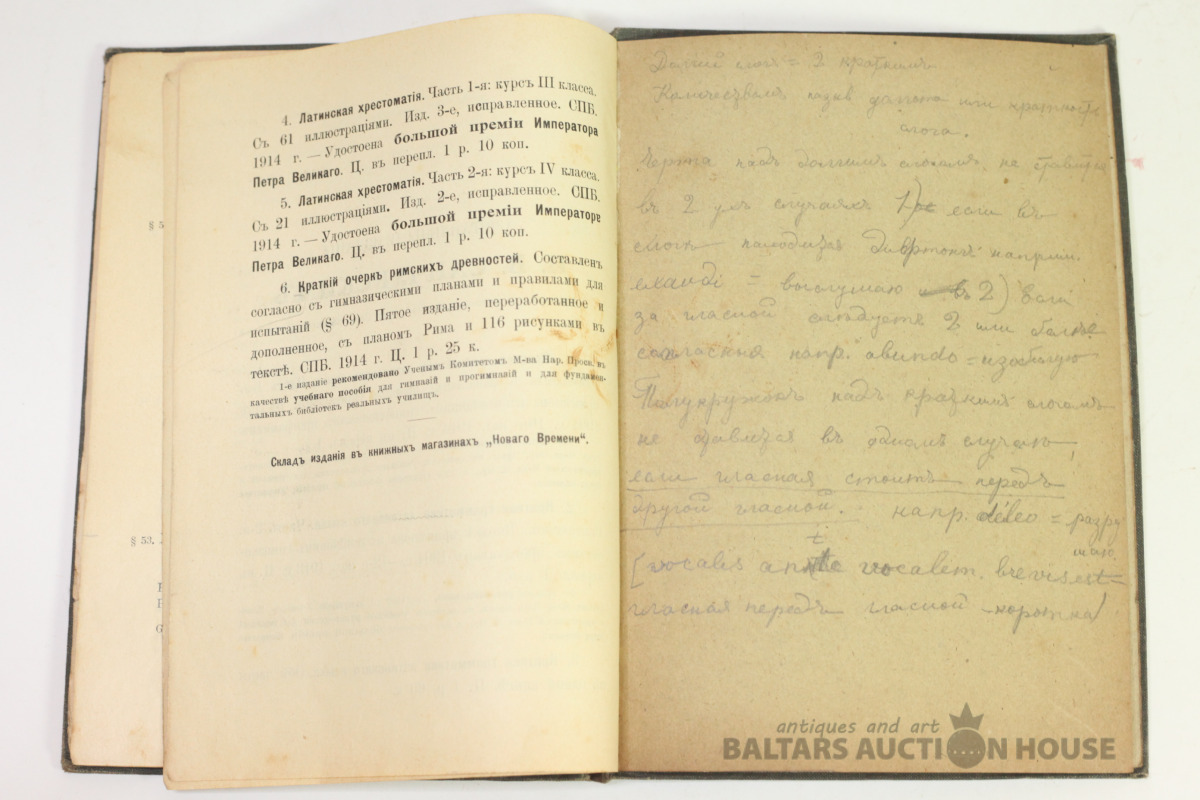 § 5
§ 53.
4. Латинская хрестоматія. Часть 1-я: курсъ III класса.
Съ 61 иллюстраціями. Изд. 3-е, исправленное. СПБ.
1914 г. — Удостоена большой преміи Императора
Петра Великаго. Ц. въ перепл. 1 р. 10 коп.
5. Латинская хрестоматія. Часть 2-я: курсъ IV класса.
Съ 21 иллюстраціями. Изд. 2-е, исправленное. СПБ.
1914 г. — Удостоена большой преміи Императоре
Петра Великаго. Ц. въ перепл. 1 р. 10 коп.
6. Краткій очеркъ римскихъ древностей. Составленъ
согласно съ гимназическими планами и правилами для
испытаній (§ 69). Пятое изданіе, переработанное и
дополненное, съ планомъ Рима и 116 рисунками въ
текстѣ. СПБ. 1914 г. Ц. 1 р. 25 к.
1-е изданіе рекомендовано Ученымъ Комитетомъ М-ва Нар. Просв. въ
качествѣ учебнаго пособія для гимназій и прогимназій и для фундамен-
тальныхъ библіотек реальныхъ училищъ.
Складъ изданія въ книжныхъ магазинахъ „Новаго Времени“.
Долгій слогъ = 2 краткимъ
Количествомъ назыв долгота или краткость
слога.
Черта надъ долгимъ слогомъ не ставится
въ 2 ухъ случаяхъ 1) если въ
слогѣ находится дифтонгъ наприм.
exaudi = выслушаю 2) Если
за гласной слѣдуетъ 2 или болѣе
согласныя напр. abundo = изобилую
Полукружокъ надъ краткимъ слогомъ
не ставится въ одномъ случаѣ,
если гласная стоитъ передъ
другой гласной. напр. deleo = разру
шаю.
[vocalis ante vocalem brevis est =
гласная передъ гласной коротка]
antiques and art
BALTARS AUCTION HOUSE